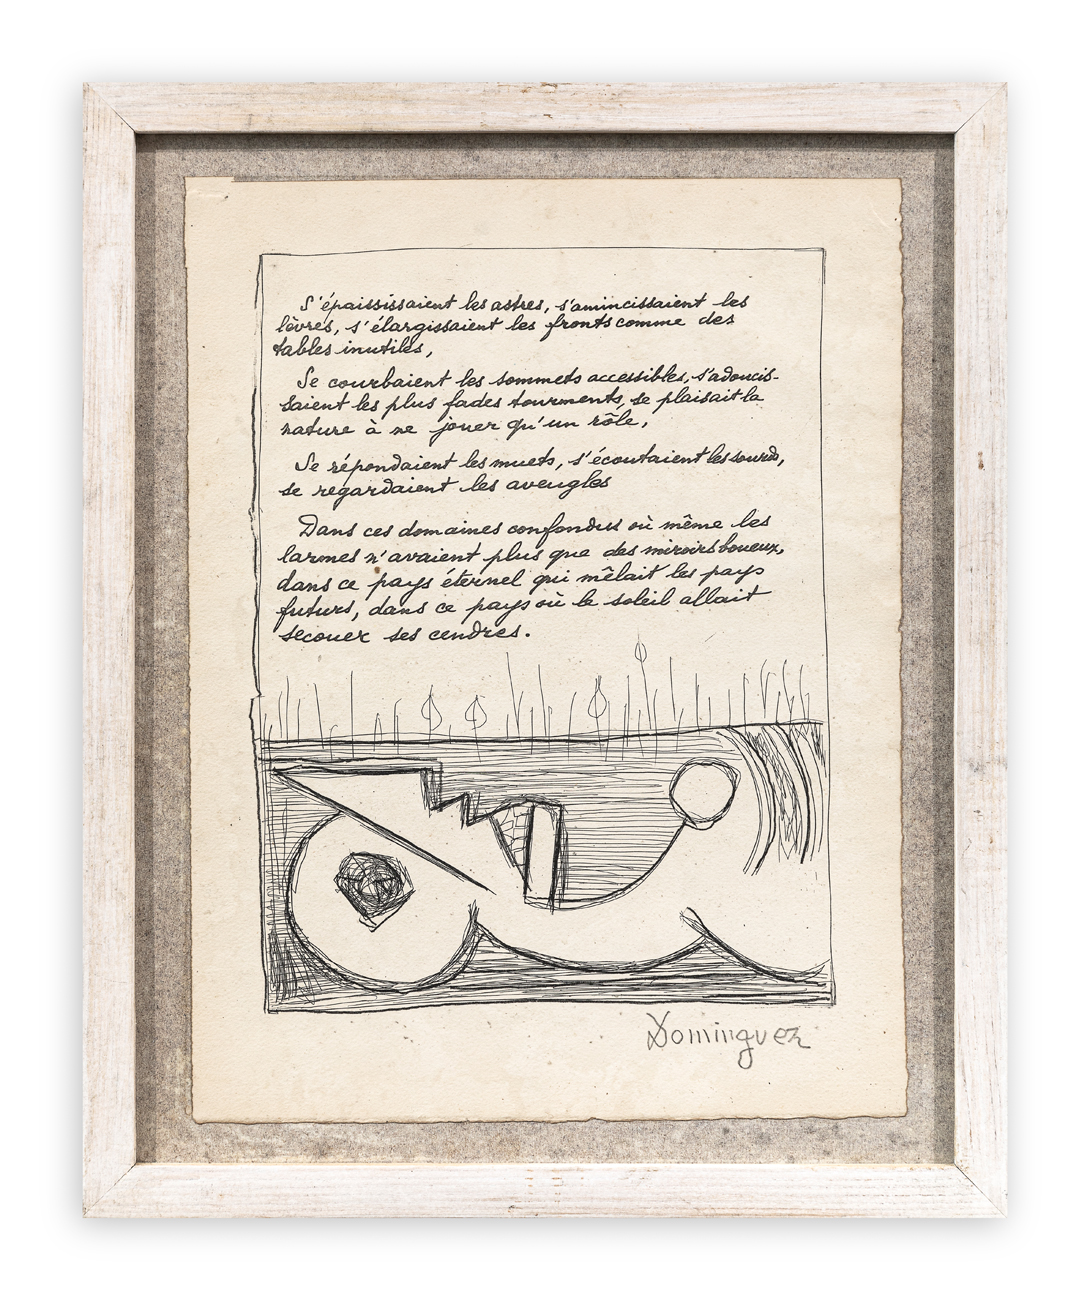 S'épaississaient les astres, s'amincissaient les
lèvres, s'élargissaient les fronts comme des
tables inutiles,
Se courbaient les sommets accessibles, s'adoucis-
saient les plus fades tourments, se plaisait la
nature à ne jouer qu'un rôle,
Se répondaient les muets, s'écoutaient les sourds,
se regardaient les aveugles
Dans ces domaines confondus où même les
larmes n'avaient plus que des miroirs boueux,
dans ce pays éternel qui mêlait les pays
futurs, dans ce pays où le soleil allait
secouer ses cendres.
Dominguez